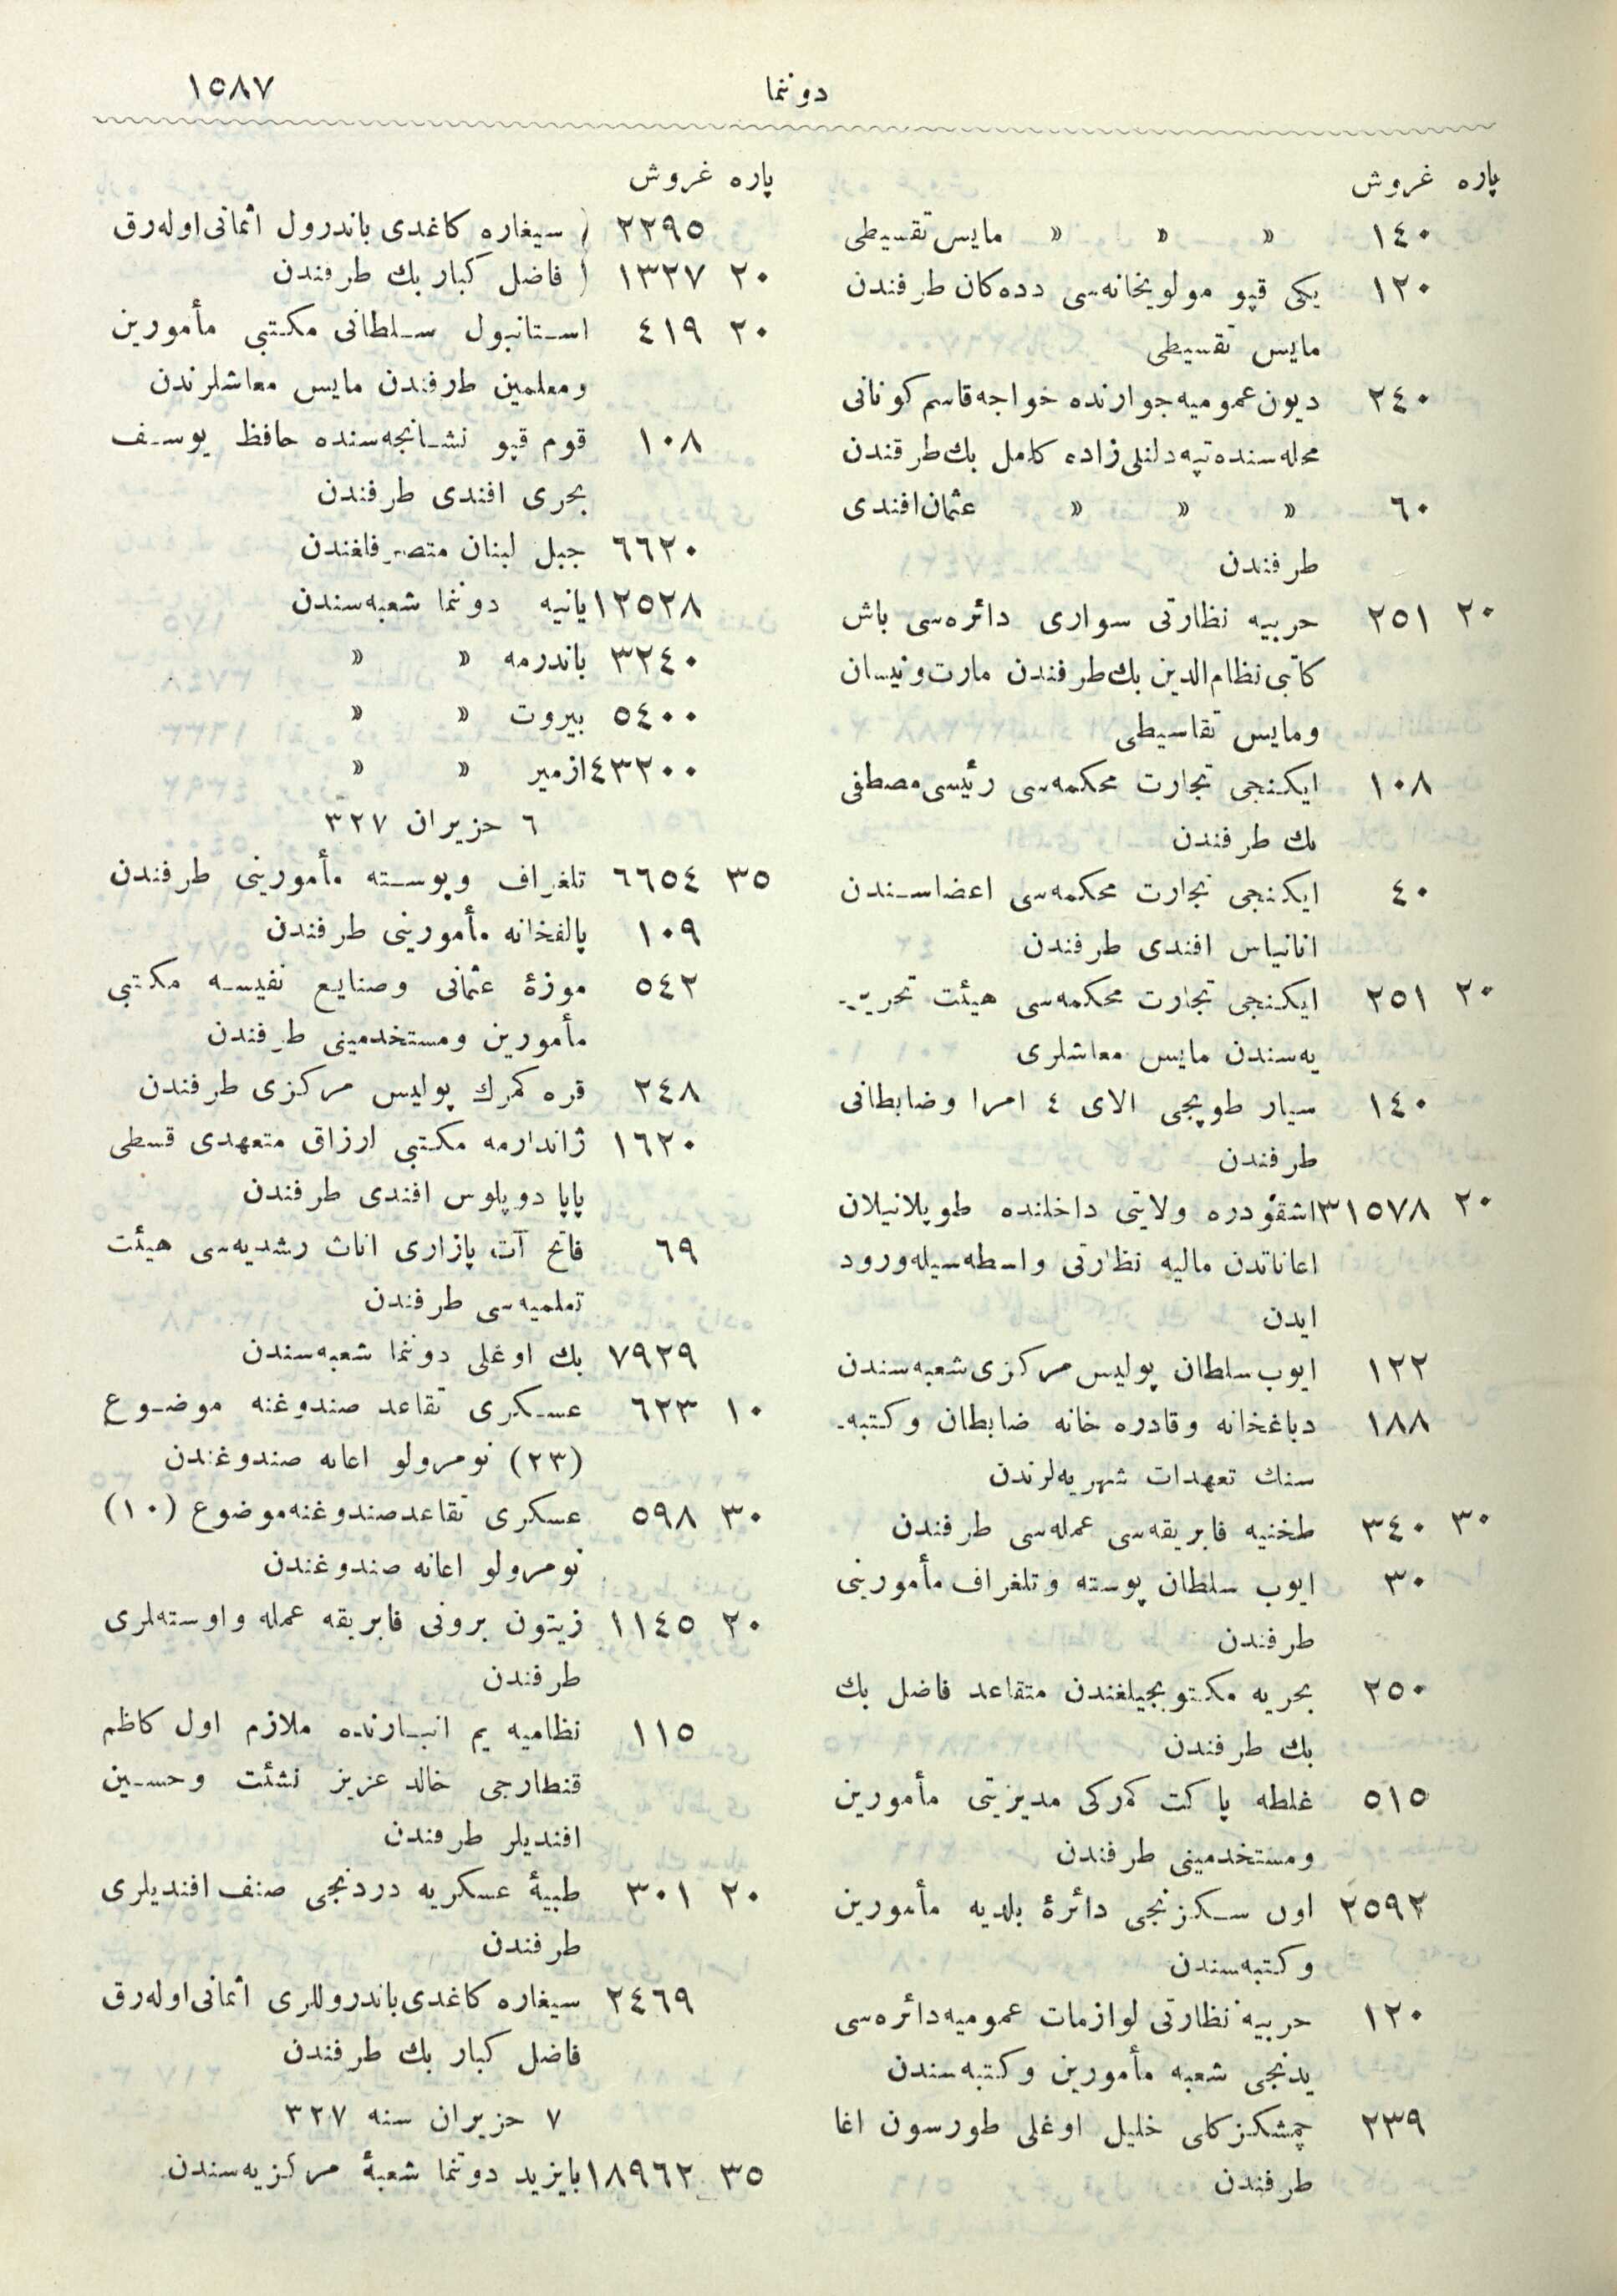 دوننما
١٥٨٧
پاره غروش
١٤٠ » » » مایس تقسیطی
١٢٠ یكی قپو مولویخانه‌سی دده‌كان طرفندن
مایس تقسیطی
٢٤٠ دیون عمومیه جوارنده خواجه قاسم كونانی
محله‌سنده تپه‌دلنلی‌زاده كامل بك طرفندن
٦٠ » » » عثمان افندی
طرفندن
٢٠ ٢٥١ حربیه نظارتی سواری دائره‌سی باش
كاتبی نظام‌الدین بك طرفندن مارت و نیسان
و مایس تقاسیطی
١٠٨ ایكنجی تجارت محكمه‌سی رئیسی مصطفی
بك طرفندن
٤٠ ایكنجی تجارت محكمه‌سی اعضاسندن
انانیاس افندی طرفندن
٢٠ ٢٥١ ایكنجی تجارت محكمه‌سی هیئت تحریر-
یه‌سندن مایس معاشلری
١٤٠ سیار طوپجی الای ٤ امرا و ضابطانی
طرفندن
٢٠ ٣١٥٧٨ اشقودره ولایتی داخلنده طوپلانیلان
اعاناتدن مالیه نظارتی واسطه‌سیله ورود
ایدن
١٢٢ ایوب سلطان پولیس مركزی شعبه‌سندن
١٨٨ دباغخانه و قادره خانه ضابطان و كتبه-
سنك تعهدات شهریه‌لرندن
٣٠ ٣٤٠ طخنیه فابریقه‌سی عمله‌سی طرفندن
٣٠ ایوب سلطان پوسته و تلغراف مأمورینی
طرفندن
٢٥٠ بحریه مكتوبجیلغندن متقاعد فاضل بك
بك طرفندن
٥١٥ غلطه پاكت كمركی مدیریتی مأمورین
و مستخدمینی طرفندن
٢٥٩٢ اون سكزنجی دائرۀ بلدیه مأمورین
و كتبه‌سندن
١٢٠ حربیه نظارتی لوازمات عمومیه دائره‌سی
یدنجی شعبه مأمورین و كتبه‌سندن
٢٣٩ چمشكزكلی خلیل اوغلی طورسون اغا
طرفندن
پاره غروش
٢٢٩٥ ( سیغاره كاغدی باندرول اثمانی اوله‌رق
٢٠ ١٣٢٧ ( فاضل كبار بك طرفندن
٢٠ ٤١٩ استانبول سلطانی مكتبی مأمورین
و معلمین طرفندن مایس معاشلرندن
١٠٨ قوم قپو نشانجه‌سنده حافظ یوسف
بحری افندی طرفندن
٦٦٢٠ جبل لبنان متصرفلغندن
١٢٥٢٨ یانیه دوننما شعبه‌سندن
٣٢٤٠ باندرمه » »
٥٤٠٠ بیروت » »
٤٣٢٠٠ ازمیر » »
٦ حزیران ٣٢٧
٣٥ ٦٦٥٤ تلغراف و پوسته مأمورینی طرفندن
١٠٩ پالفخانه مأمورینی طرفندن
٥٤٢ موزۀ عثمانی و صنایع نفیسه مكتبی
مأمورین و مستخدمینی طرفندن
٢٤٨ قره كمرك پولیس مركزی طرفندن
١٦٢٠ ژاندارمه مكتبی ارزاق متعهدی قسطی
پاپا دوپلوس افندی طرفندن
٦٩ فاتح آت پازاری اناث رشدیه‌سی هیئت
تعلمیه‌سی طرفندن
٧٩٢٩ بك اوغلی دوننما شعبه‌سندن
١٠ ٦٢٣ عسكری تقاعد صندوغنه موضوع
(٢٣) نومرولو اعانه صندوغندن
٣٠ ٥٩٨ عسكری تقاعد صندوغنه موضوع (١٠)
نومرولو اعانه صندوغندن
٢٠ ١١٤٥ زیتون برونی فابریقه عمله و اوسته‌لری
طرفندن
١١٥ نظامیه یم انبارنده ملازم اول كاظم
قنطارجی خالد عزیز نشئت و حسین
افندیلر طرفندن
٢٠ ٣٠١ طبیۀ عسكریه دردنجی صنف افندیلری
طرفندن
٢٤٦٩ سیغاره كاغدی باندروللری اثمانی اوله‌رق
فاضل كبار بك طرفندن
٧ حزیران سنه ٣٢٧
٣٥ ١٨٩٦٢ بایزید دوننما شعبۀ مركزیه‌سندن